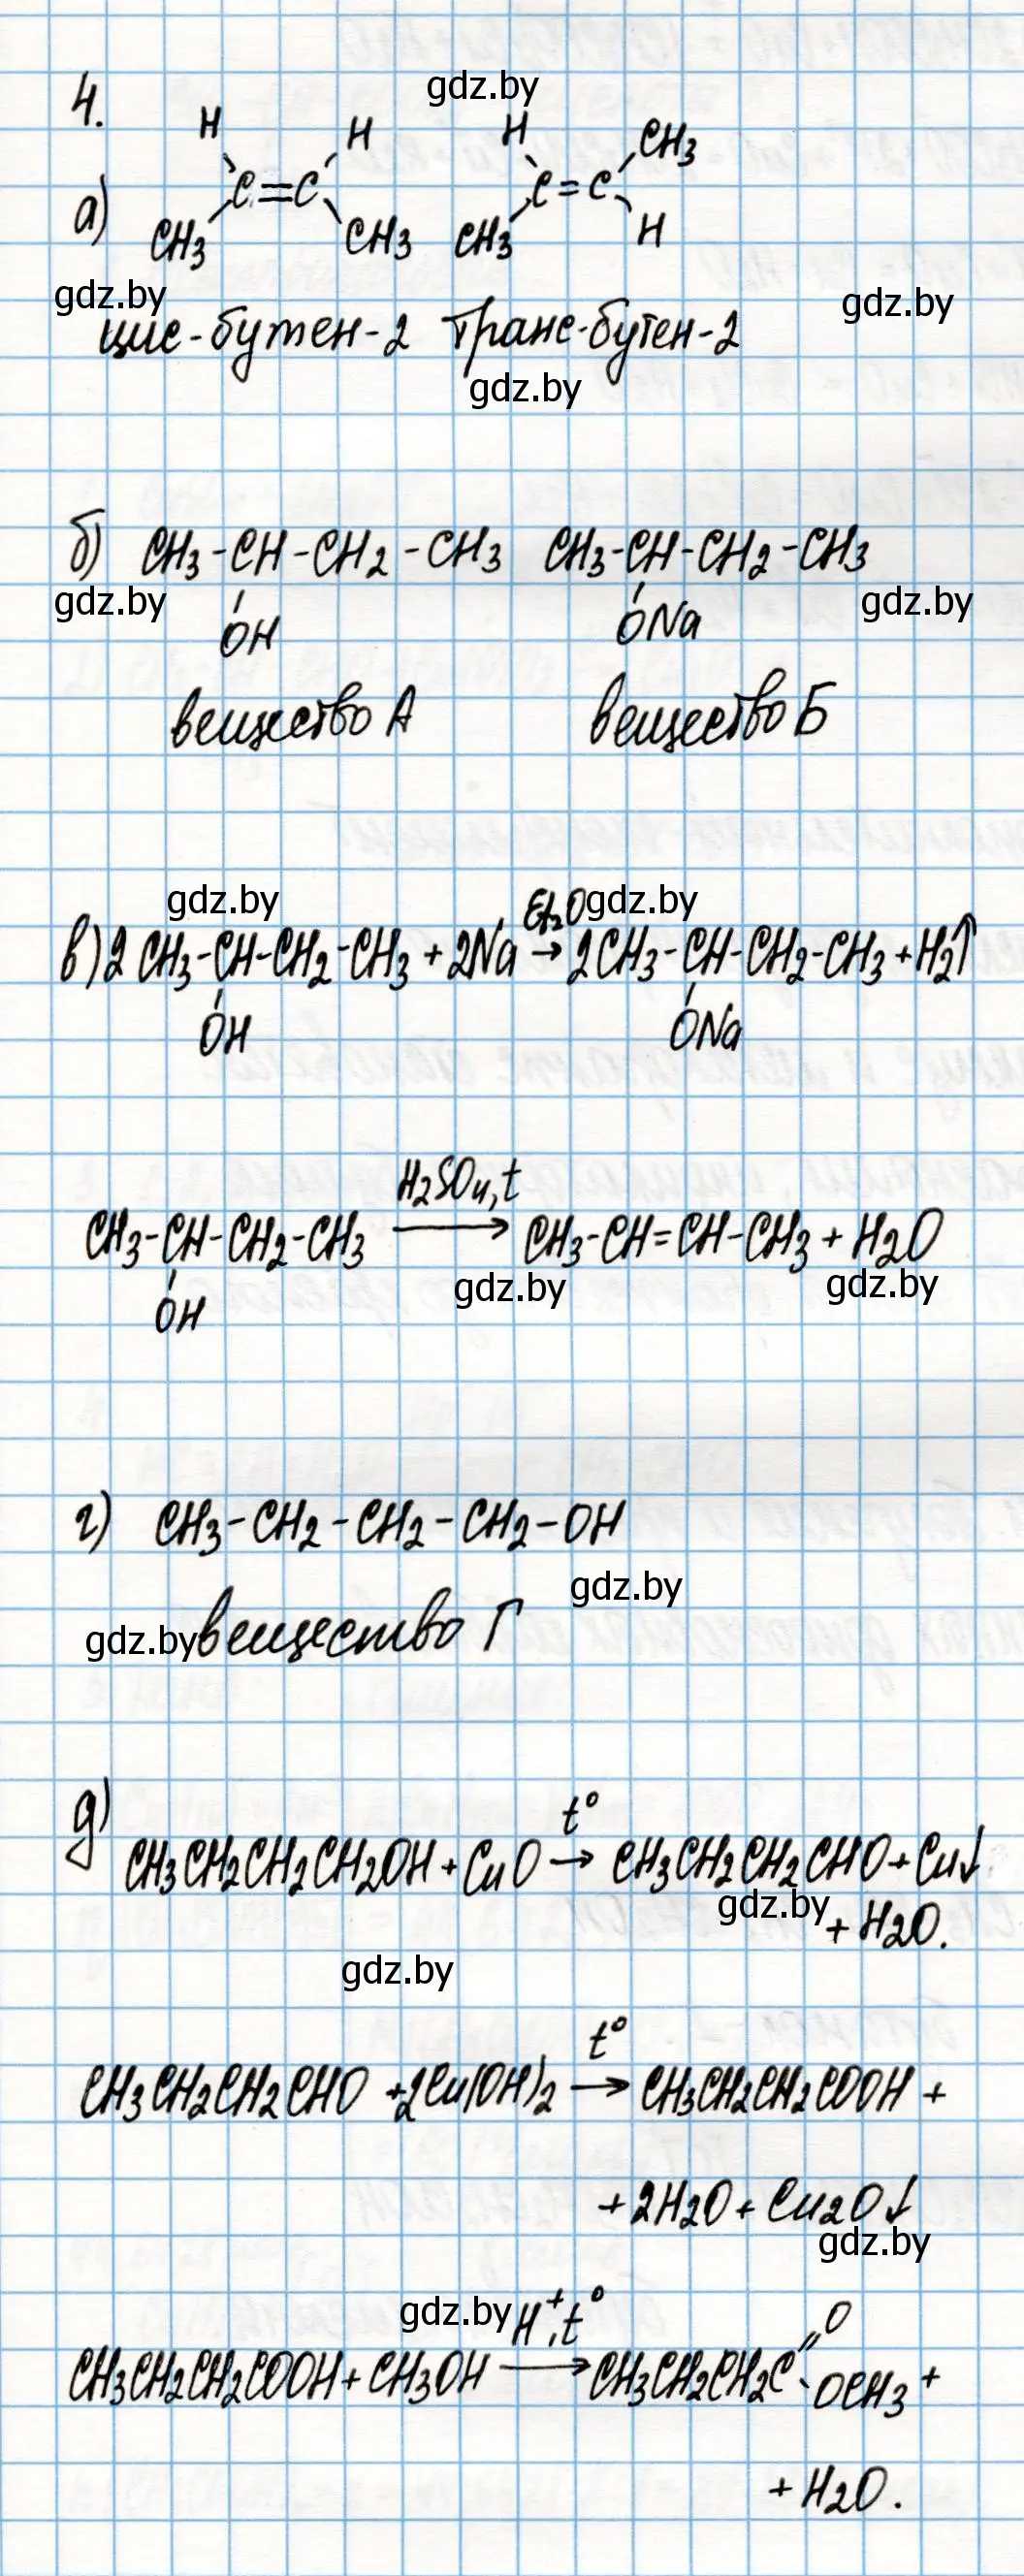 4.
gdz.by
а)
H H H CH3
C=C C=C
CH3 CH3 CH3 H
gdz.by gdz.by
цис-бутен-2 транс-бутен-2
gdz.by
б) CH3-CH-CH2-CH3 CH3-CH-CH2-CH3
gdz.by gdz.by
OH ONa
вещество А вещество Б
gdz.by gdz.by
Et2O
в) 2 CH3-CH-CH2-CH3 + 2Na → 2CH3-CH-CH2-CH3 + H2↑
OH ONa
H2SO4, t
CH3-CH-CH2-CH3 → CH3-CH=CH-CH3 + H2O
gdz.by gdz.by
OH
г) CH3-CH2-CH2-CH2-OH
gdz.by
gdz.by вещество Г
д) t°
CH3CH2CH2CH2OH + CuO → CH3CH2CH2CHO + Cu↓
gdz.by + H2O.
gdz.by
t°
CH3CH2CH2CHO + 2Cu(OH)2 → CH3CH2CH2COOH +
+ 2H2O + Cu2O↓
gdz.by
gdz.by H+, t° O
CH3CH2CH2COOH + CH3OH → CH3CH2CH2C OCH3 +
+ H2O.